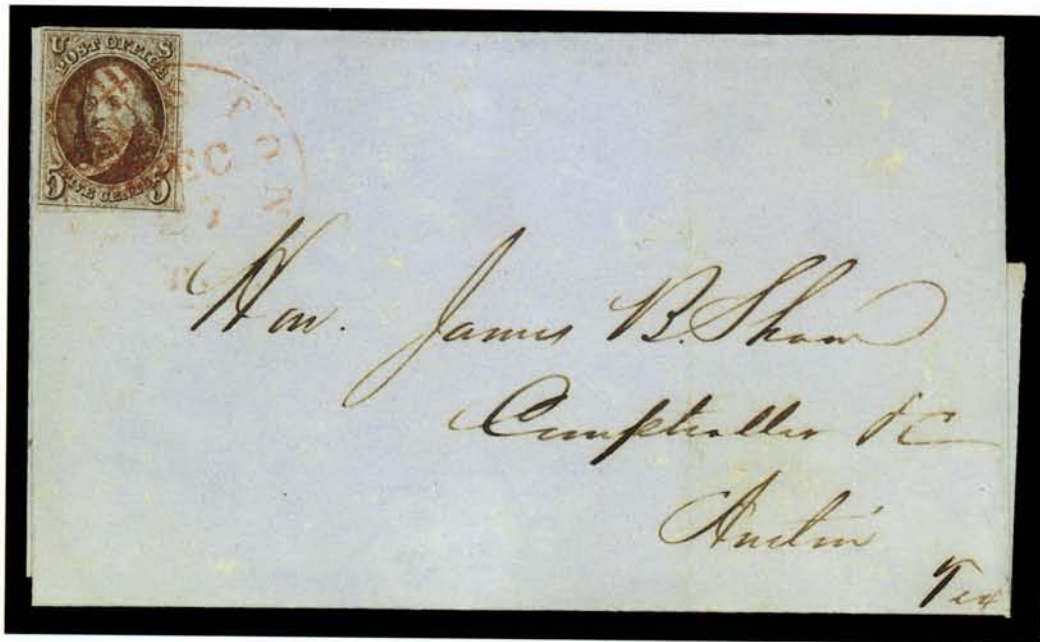 U S
POST OFFICE
5 FIVE CENTS 5
DEC
27
Hon. James B. Shaw
Comptroller &C
Austin
Tex